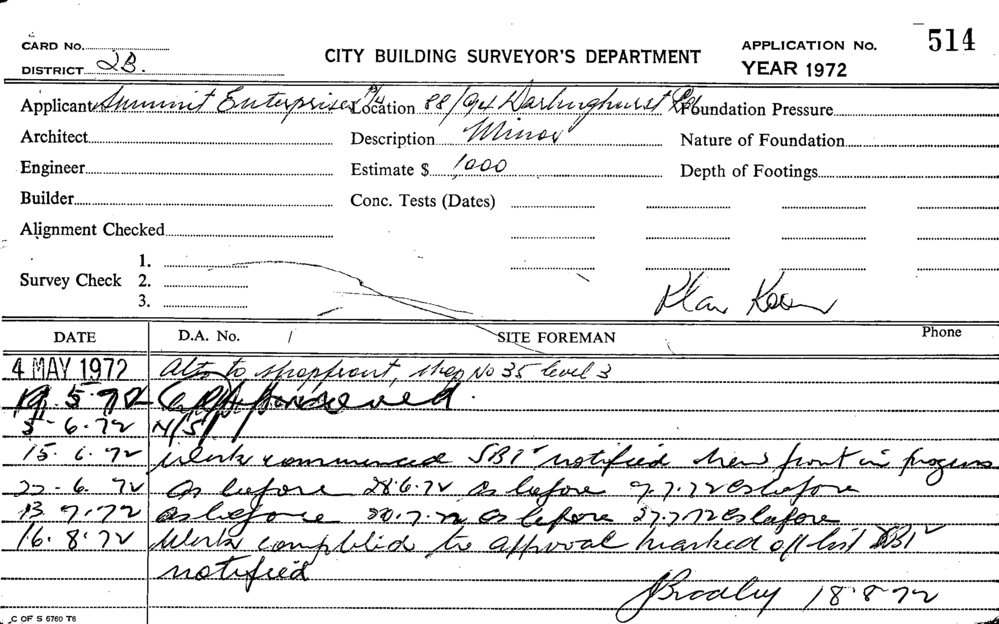 CARD No. CITY BUILDING SURVEYOR'S DEPARTMENT APPLICATION No. 514
DISTRICT 2B. YEAR 1972
Applicant Summit Enterprises P/L Location 88/94 Darlinghurst Rd Foundation Pressure
Architect Description Minor Nature of Foundation
Engineer Estimate $ 1,000 Depth of Footings
Builder Conc. Tests (Dates)
Alignment Checked
1.
Survey Check 2.
3.
DATE D.A. No. / SITE FOREMAN Phone
4 MAY 1972 Altns to shopfront, shop No 35 level 3
19.5.72 Approved.
5-6.72 N/S
15.6.72 Work commenced SBI notified new front in progress
22-6.72 as before 28.6.72 as before 7.7.72 as before
13.7.72 as before 20.7.72 as before 27.7.72 as before
16.8.72 Work completed to approval marked off list SBI
notified
JBradley 18.8.72
C OF S 5760 T6